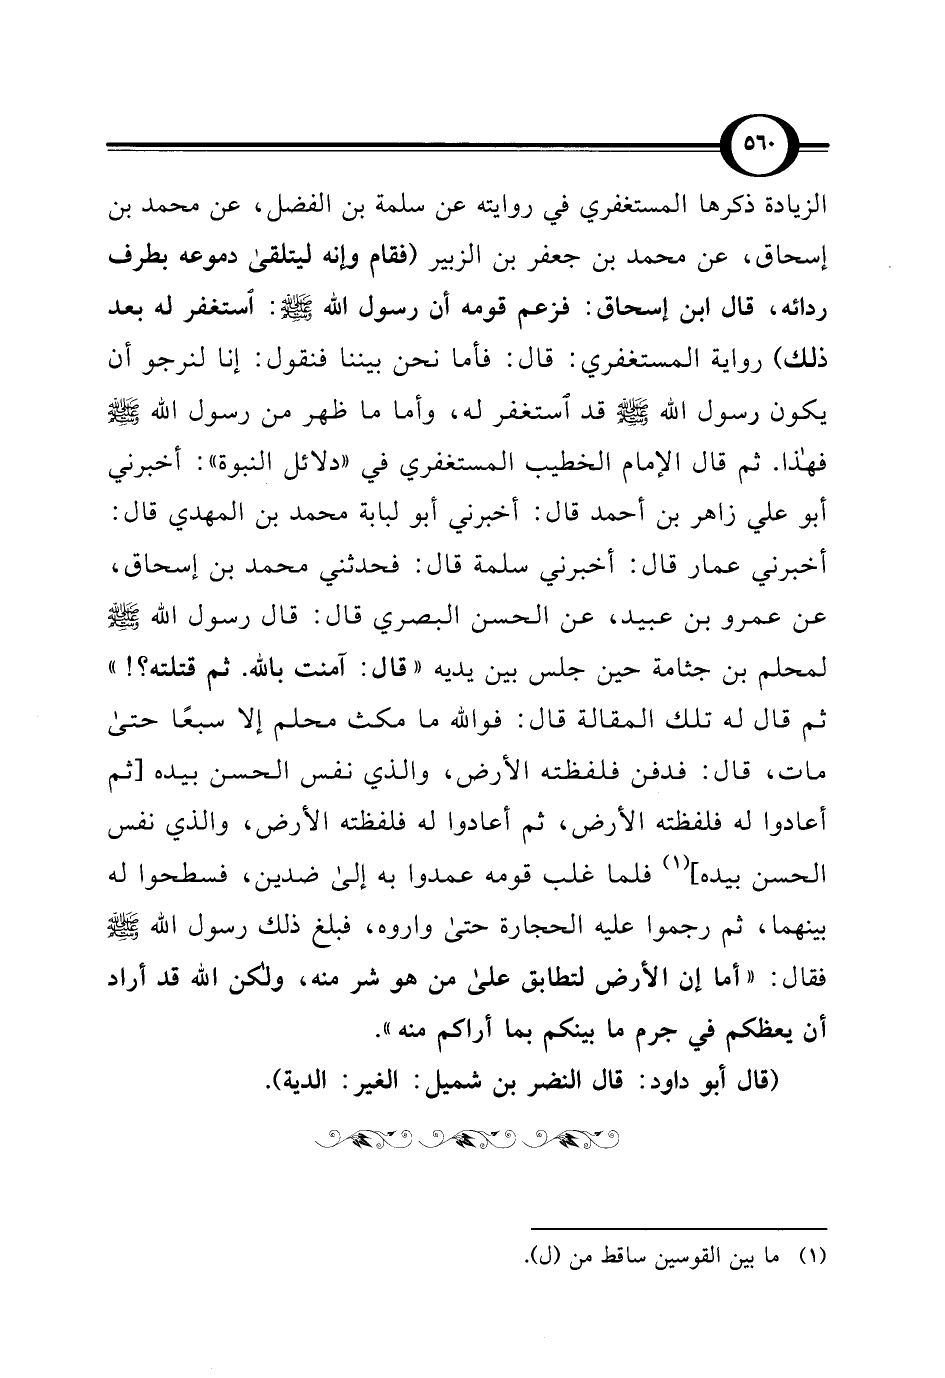 ٥٦٠
الزيادة ذكرها المستغفري في روايته عن سلمة بن الفضل، عن محمد بن
إسحاق، عن محمد بن جعفر بن الزبير (فقام وإنه ليتلقىٰ دموعه بطرف
ردائه، قال ابن إسحاق: فزعم قومه أن رسول الله ﷺ: ٱستغفر له بعد
ذلك) رواية المستغفري: قال: فأما نحن بيننا فنقول: إنا لنرجو أن
يكون رسول الله ﷺ قد ٱستغفر له، وأما ما ظهر من رسول الله ﷺ
فهٰذا. ثم قال الإمام الخطيب المستغفري في «دلائل النبوة»: أخبرني
أبو علي زاهر بن أحمد قال: أخبرني أبو لبابة محمد بن المهدي قال:
أخبرني عمار قال: أخبرني سلمة قال: فحدثني محمد بن إسحاق،
عن عمرو بن عبيد، عن الحسن البصري قال: قال رسول الله ﷺ
لمحلم بن جثامة حين جلس بين يديه «قال: آمنت بالله. ثم قتلته؟!»
ثم قال له تلك المقالة قال: فوالله ما مكث محلم إلا سبعًا حتىٰ
مات، قال: فدفن فلفظته الأرض، والذي نفس الحسن بيده [ثم
أعادوا له فلفظته الأرض، ثم أعادوا له فلفظته الأرض، والذي نفس
الحسن بيده](١) فلما غلب قومه عمدوا به إلىٰ ضدين، فسطحوا له
بينهما، ثم رجموا عليه الحجارة حتىٰ واروه، فبلغ ذلك رسول الله ﷺ
فقال: «أما إن الأرض لتطابق علىٰ من هو شر منه، ولٰكن الله قد أراد
أن يعظكم في جرم ما بينكم بما أراكم منه».
(قال أبو داود: قال النضر بن شميل: الغير: الدية).
(١) ما بين القوسين ساقط من (ل).